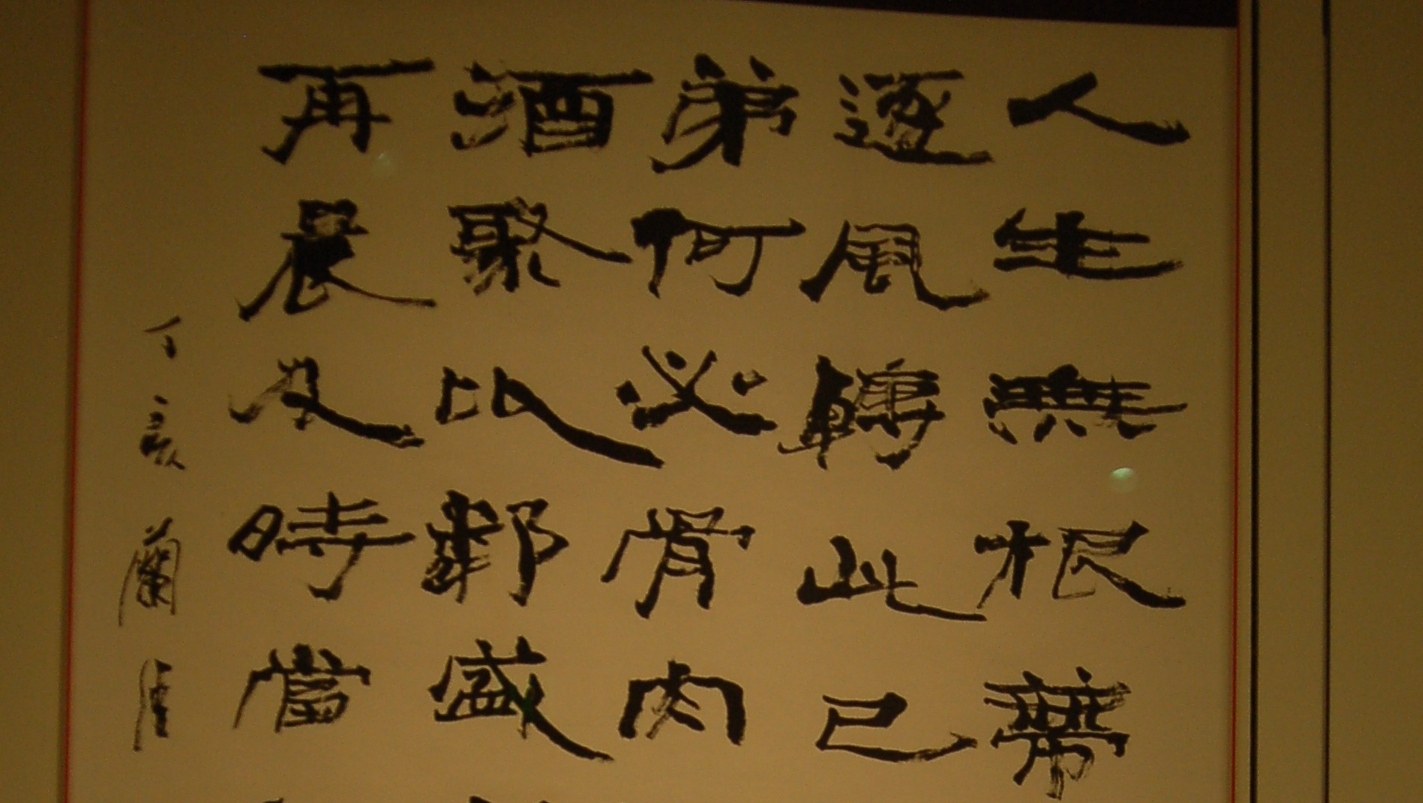 人生無根蔕
逐風轉此已
弟何必骨肉
酒聚比鄰盛
再晨及時當
丁亥蘭